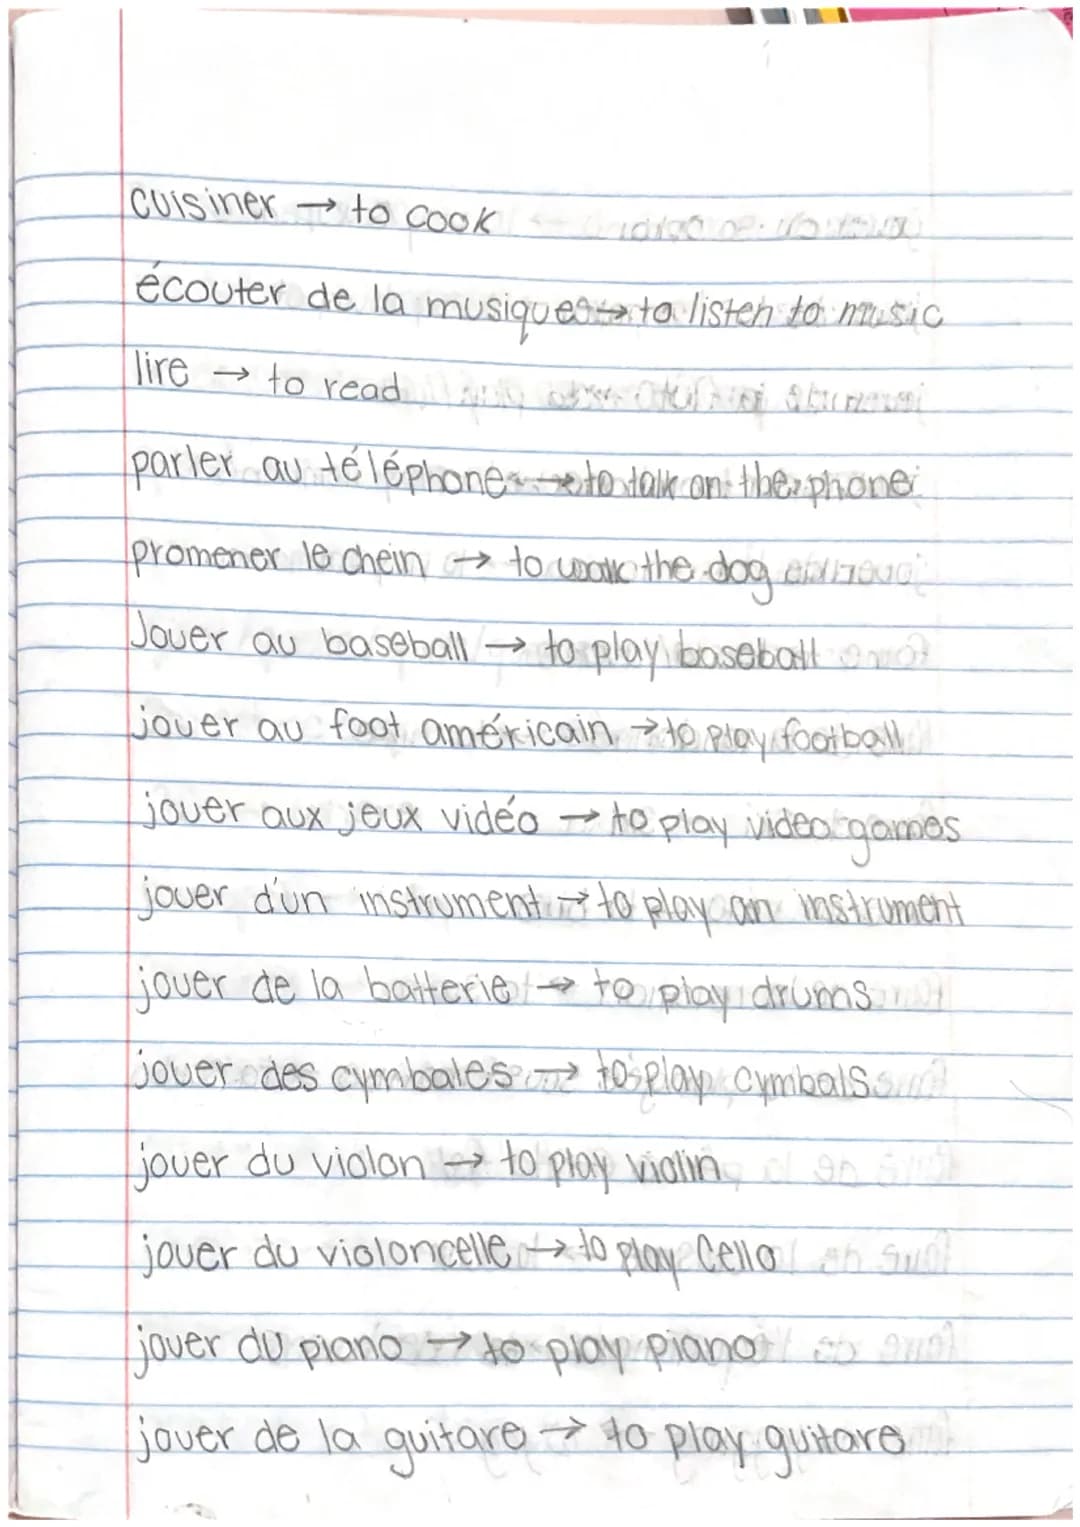 cuisiner → to cook
écouter de la musique → to listen to music
lire → to read
parler au téléphone → to talk on the phone
promener le chein → to walk the dog
Jouer au baseball → to play baseball
jouer au foot américain → to play football
jouer aux jeux vidéo → to play video games
jouer d'un instrument → to play an instrument
jouer de la batterie → to play drums
jouer des cymbales → to play cymbals
jouer du violon → to play violin
jouer du violoncelle → to play Cello
jouer du piano → to play piano
jouer de la guitare → to play guitare